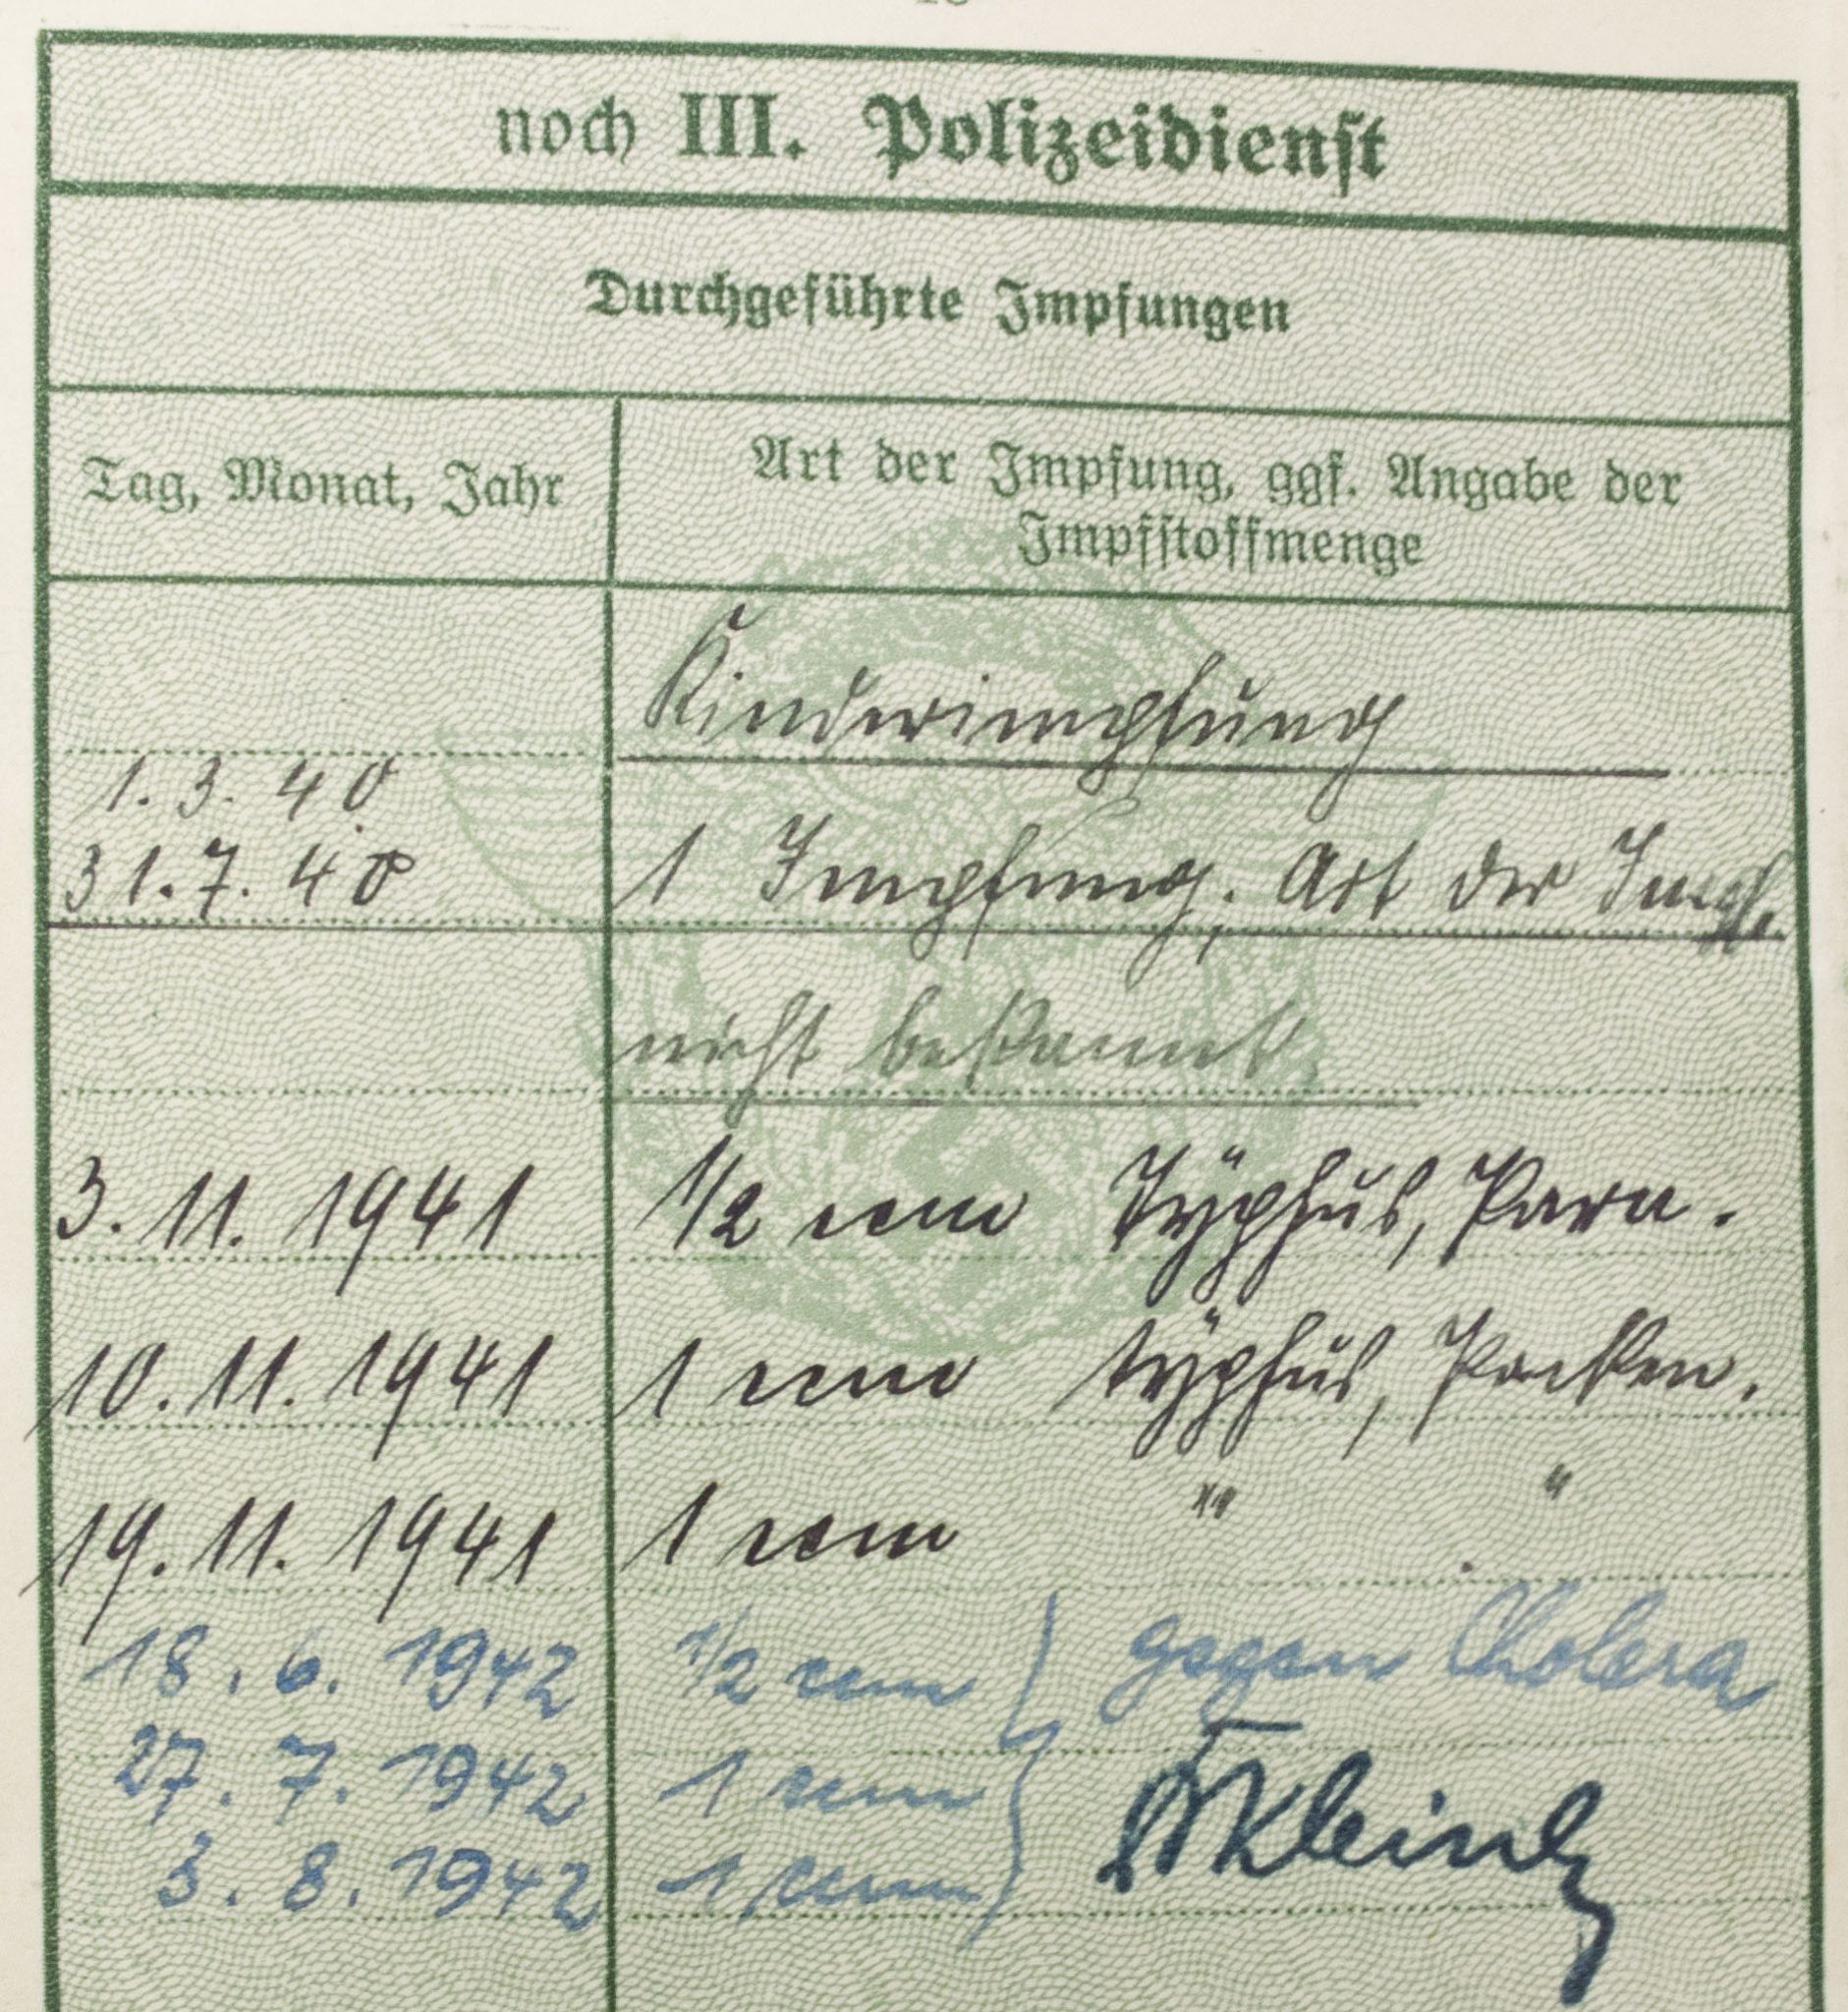 noch III. Polizeidienst
Durchgeführte Impfungen
Tag, Monat, Jahr
Art der Impfung, ggf. Angabe der
Impfstoffmenge
Kinderimpfung
1. 3. 40
31. 7. 40 1 Impfung. Art der Impf.
nicht bekannt
3. 11. 1941 1/2 ccm Typhus, Para.
10. 11. 1941 1 ccm typhus, Pocken.
19. 11. 1941 1 ccm " "
18. 6. 1942 1/2 ccm gegen Cholera
27. 7. 1942 1 ccm
3. 8. 1942 1 ccm